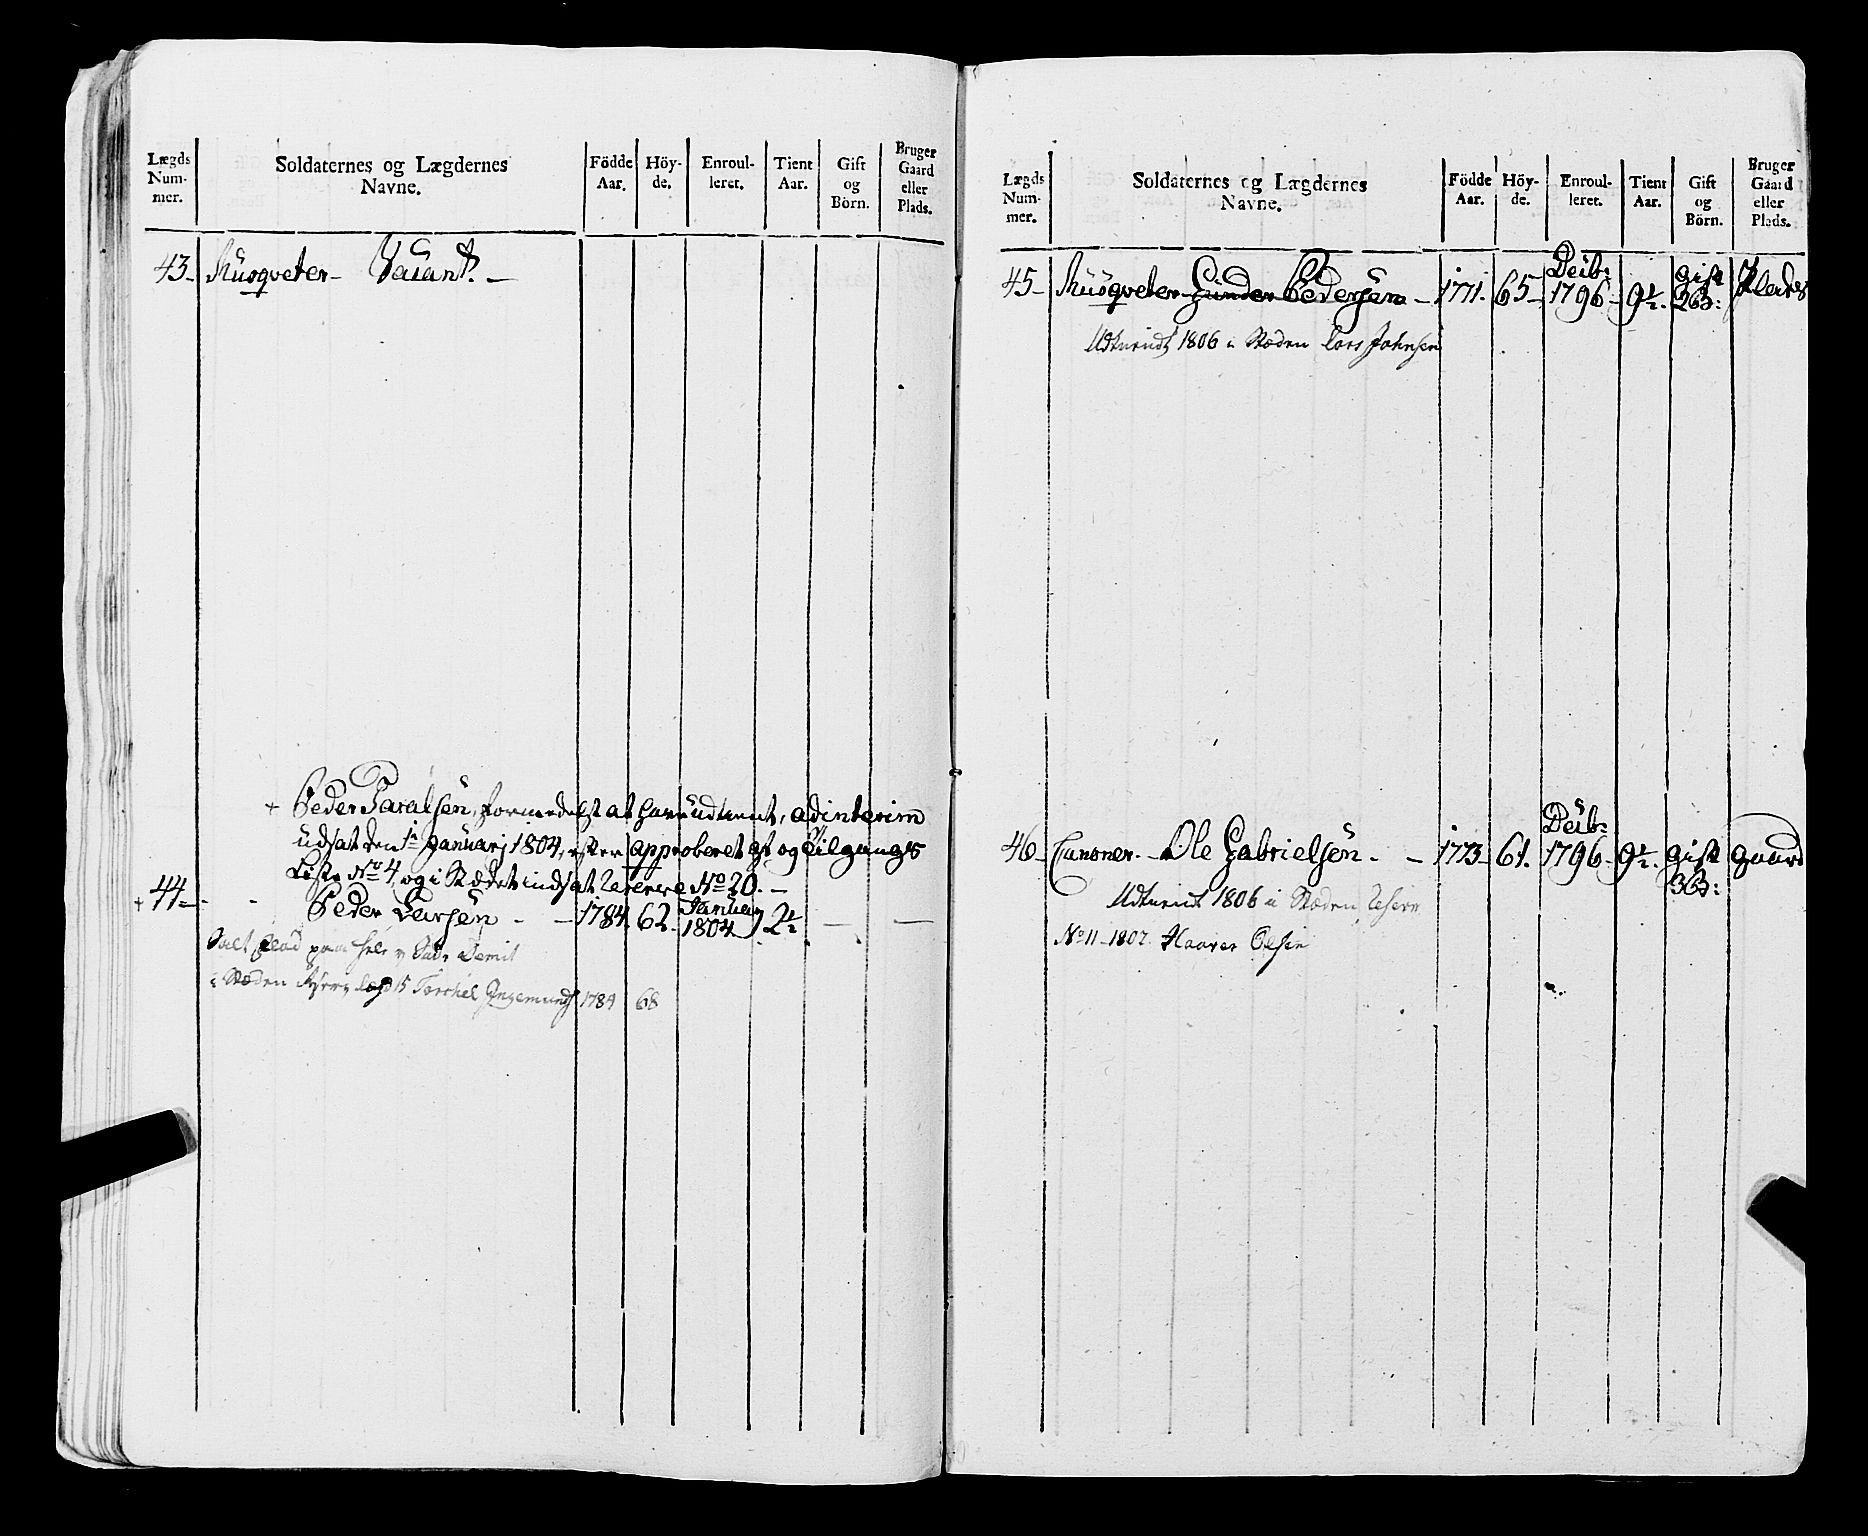 Lægds Num- mer.
Soldaternes og Lægdernes Navne.
Födde Aar.
Höy- de.
Enroul- leret.
Tient Aar.
Gift og Börn.
Bruger Gaard eller Plads.
43- Musqveter- Vacant.-
+ Peder Taralsen, formedelst at have udtient, ad interim
udsat den 1te Januarj 1804, efter approberet Af og Tilgangs
Liste No 4, og i Stædet indsat Reserve No 20.-
+ 44- Peder Larsen - - 1784. 62. Januarj 1804 2½ - -
i Stæden lægd 15 Torchel Ingemunds 1784 68
Lægds Num- mer.
Soldaternes og Lægdernes Navne.
Födde Aar.
Höy- de.
Enroul- leret.
Tient Aar.
Gift og Börn.
Bruger Gaard eller Plads.
45- Musqveter Gunder Pedersen - 1771. 65- Decb: 1796- 9½. gift 2 B: Plads
Udtient 1806 i Stæden Lars Johnsen
46- Canoner.- Ole Gabrielsen - - 1773- 61. Decb: 1796- 9½. gift 3 B: gaard
Udtient 1806 i Stæden Reserv
No 11-1807. Haaver Olsen